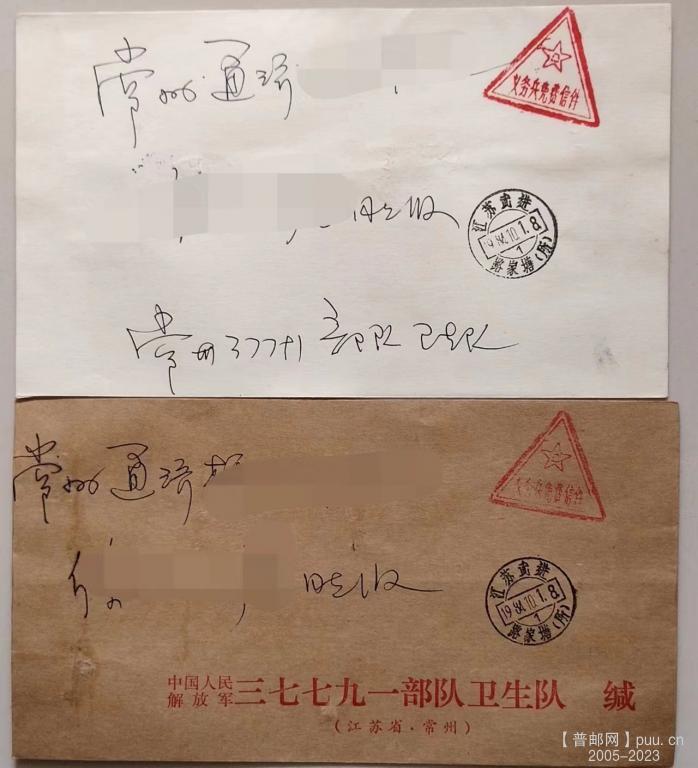 常州通济
义务兵免费信件
江苏武进
1984.10.1.8.
1
路家塘(所)
收
常州37791部队卫生队
常州通济
义务兵免费信件
江苏武进
1984.10.1.8.
1
路家塘(所)
收
中国人民
解放军
三七七九一部队卫生队 缄
(江苏省·常州)
【普邮网】puu.cn
2005-2023